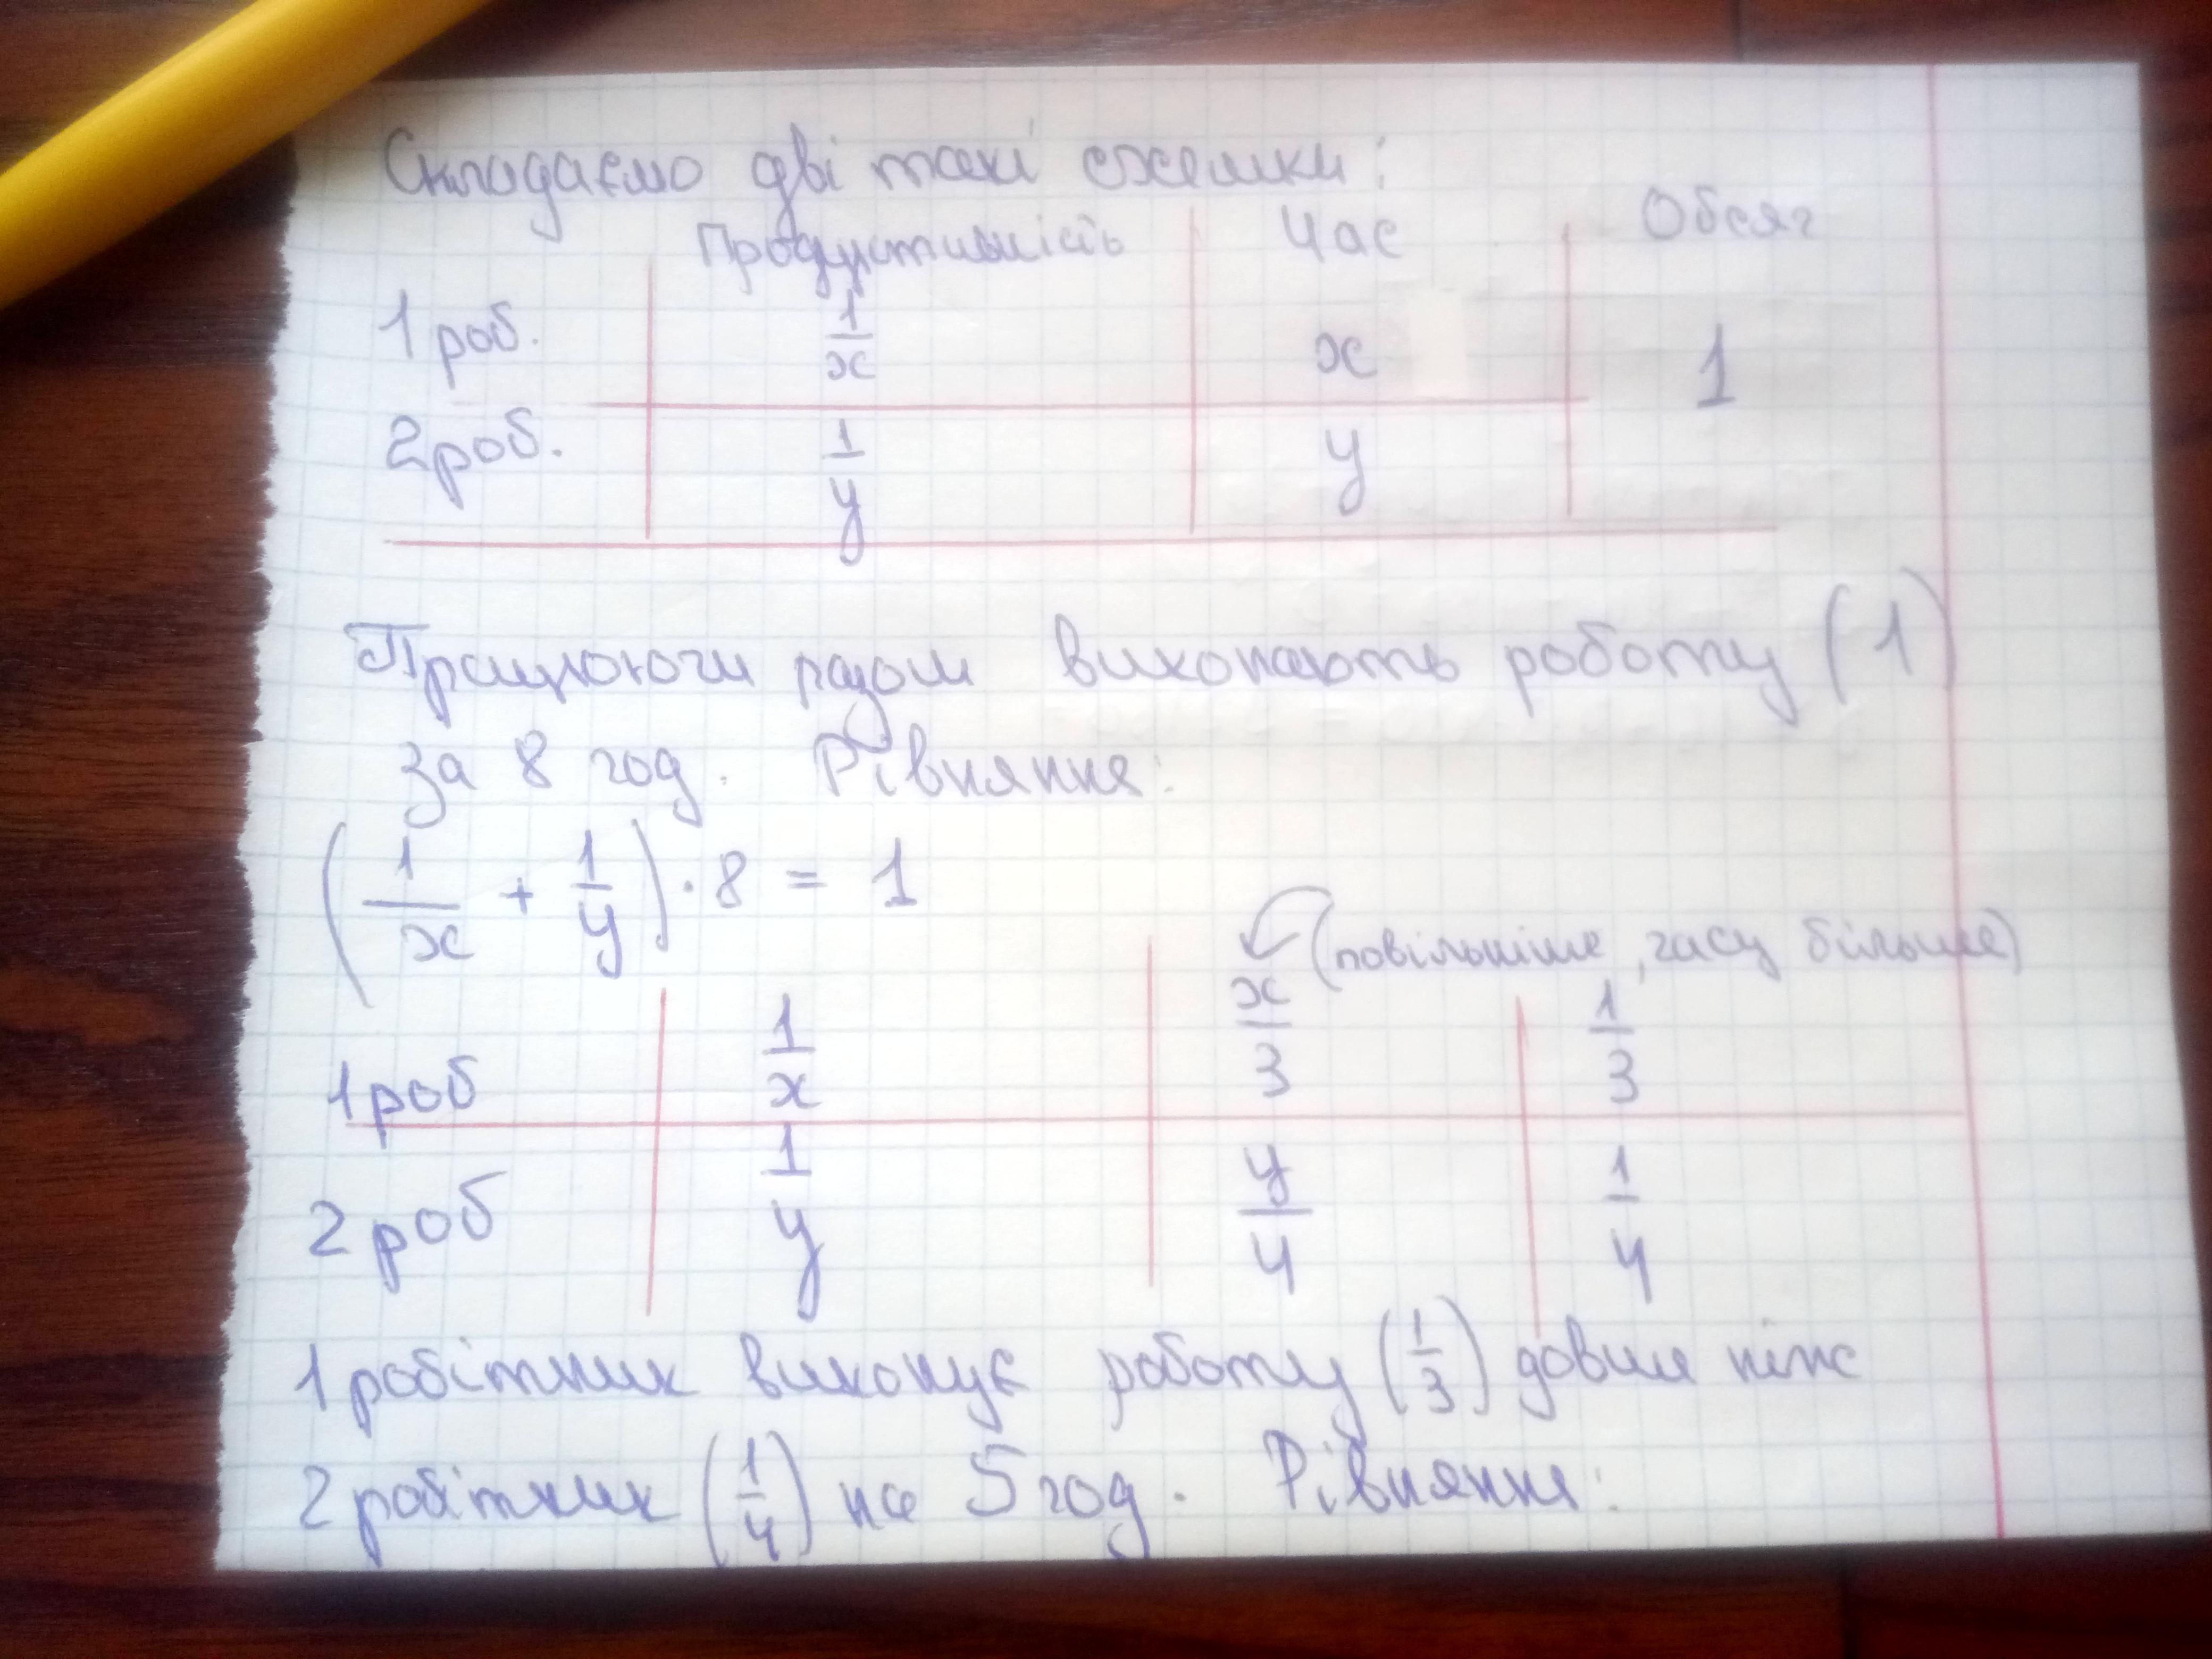 Складаємо дві такі схемки:
Продуктивність Час Обсяг
1 роб. 1/x x 1
2 роб. 1/y y
Працюючи разом виконають роботу (1)
за 8 год. Рівняння:
(1/x + 1/y) · 8 = 1
(повільніше, часу більше)
1 роб 1/x x/3 1/3
2 роб 1/y y/4 1/4
1 робітник виконує роботу (1/3) довше ніж
2 робітник (1/4) на 5 год. Рівняння: